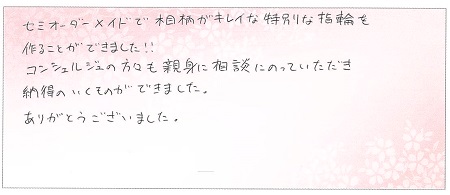 セミオーダーメイドで木目柄がキレイな特別な指輪を
作ることができました!!
コンシェルジェの方々も親身に相談にのっていただき
納得のいくものができました。
ありがとうございました。